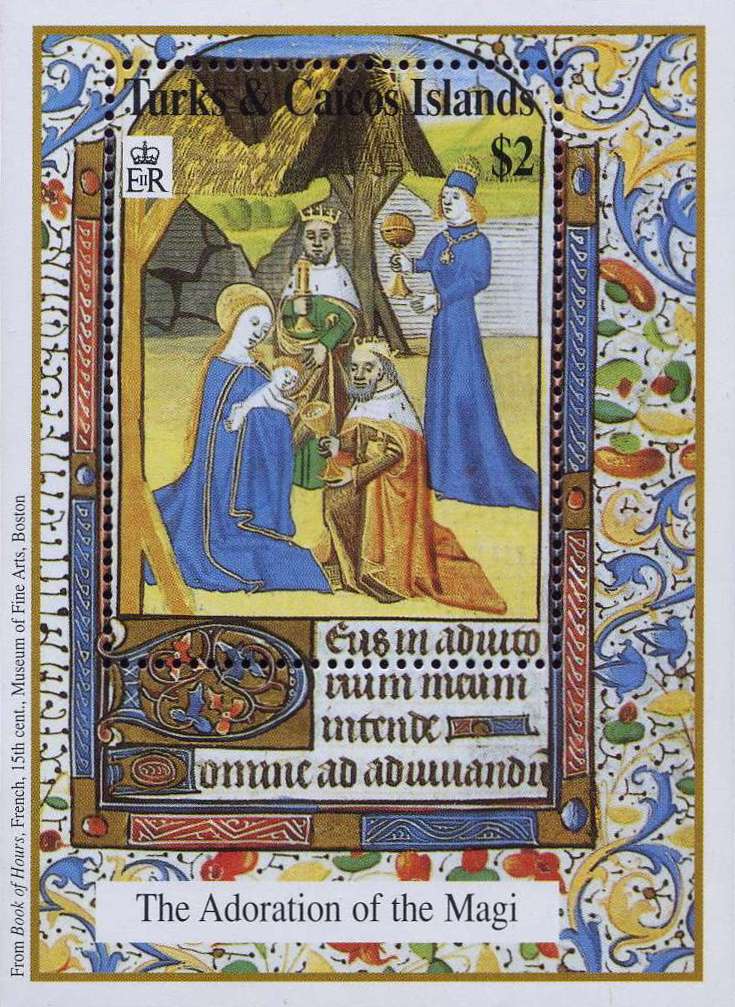 Turks & Caicos Islands
$2
EIIR
Deus in adiuto
rium meum
intende
Domine ad adiuuandū
The Adoration of the Magi
From Book of Hours, French, 15th cent., Museum of Fine Arts, Boston